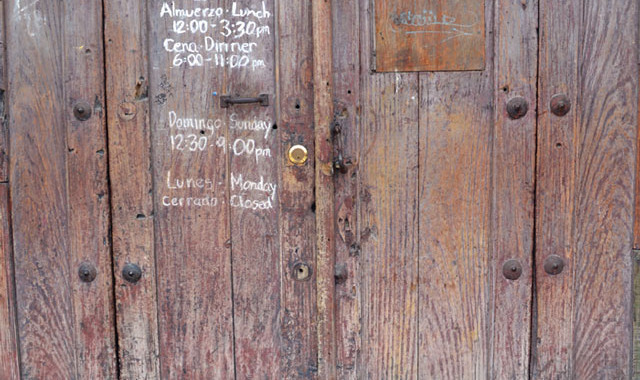 Almuerzo · Lunch
12:00 - 3:30pm
Cena · Dinner
6:00 - 11:00pm
Domingo · Sunday
12:30 - 9:00pm
Lunes · Monday
Cerrado · Closed